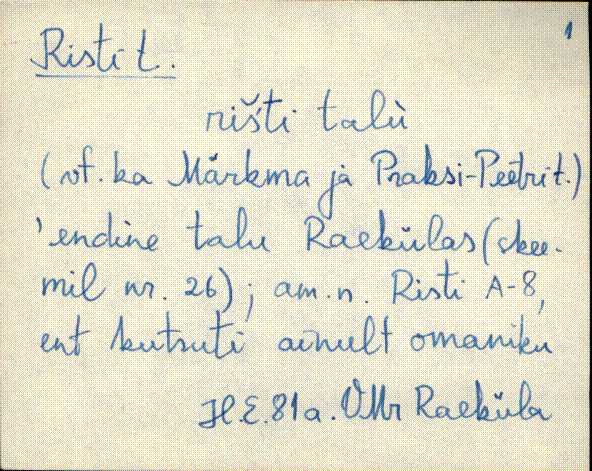 1
Risti t.
rišti talù
(vt. ka Märkma ja Praksi-Peetri t.)
'endine talu Raekülas (skee-
mil nr. 26); am.n. Risti A-8,
ent kutsuti ainult omaniku
H.E.81a. VMr Raeküla